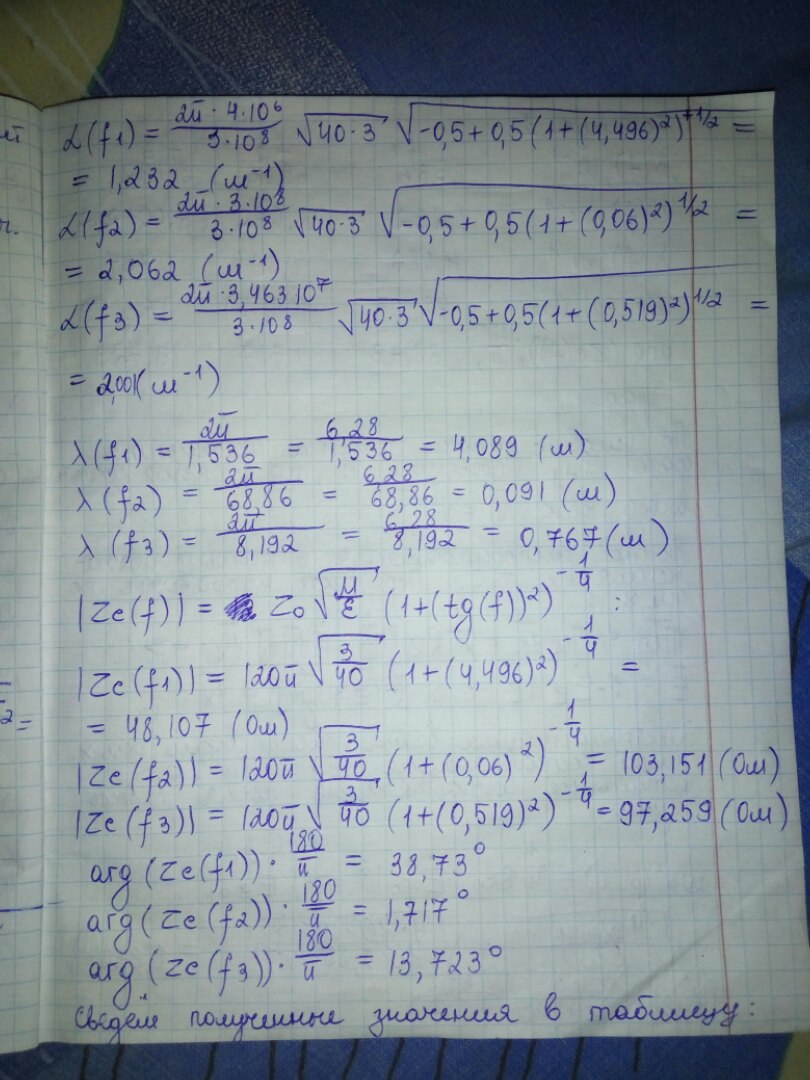 α(f1) = 2π · 4·10⁶ / 3·10⁸ √40·3 √-0,5 + 0,5 (1 + (4,496)²)^1/2 =
= 1,232 (м⁻¹)
α(f2) = 2π · 3·10⁸ / 3·10⁸ √40·3 √-0,5 + 0,5 (1 + (0,06)²)^1/2 =
= 2,062 (м⁻¹)
α(f3) = 2π · 3,463 10⁷ / 3·10⁸ √40·3 √-0,5 + 0,5 (1 + (0,519)²)^1/2 =
= 2,001 (м⁻¹)
λ(f1) = 2π / 1,536 = 6,28 / 1,536 = 4,089 (м)
λ(f2) = 2π / 68,86 = 6,28 / 68,86 = 0,091 (м)
λ(f3) = 2π / 8,192 = 6,28 / 8,192 = 0,767 (м)
|Zc(f)| = Z₀ √μ/ε (1 + (tg(f))²)^-1/4 :
|Zc(f1)| = 120π √3/40 (1 + (4,496)²)^-1/4 =
= 48,107 (Ом)
|Zc(f2)| = 120π √3/40 (1 + (0,06)²)^-1/4 = 103,151 (Ом)
|Zc(f3)| = 120π √3/40 (1 + (0,519)²)^-1/4 = 97,259 (Ом)
arg (Zc(f1)) · 180/π = 38,73°
arg (Zc(f2)) · 180/π = 1,717°
arg (Zc(f3)) · 180/π = 13,723°
Сведём полученные значения в таблицу: